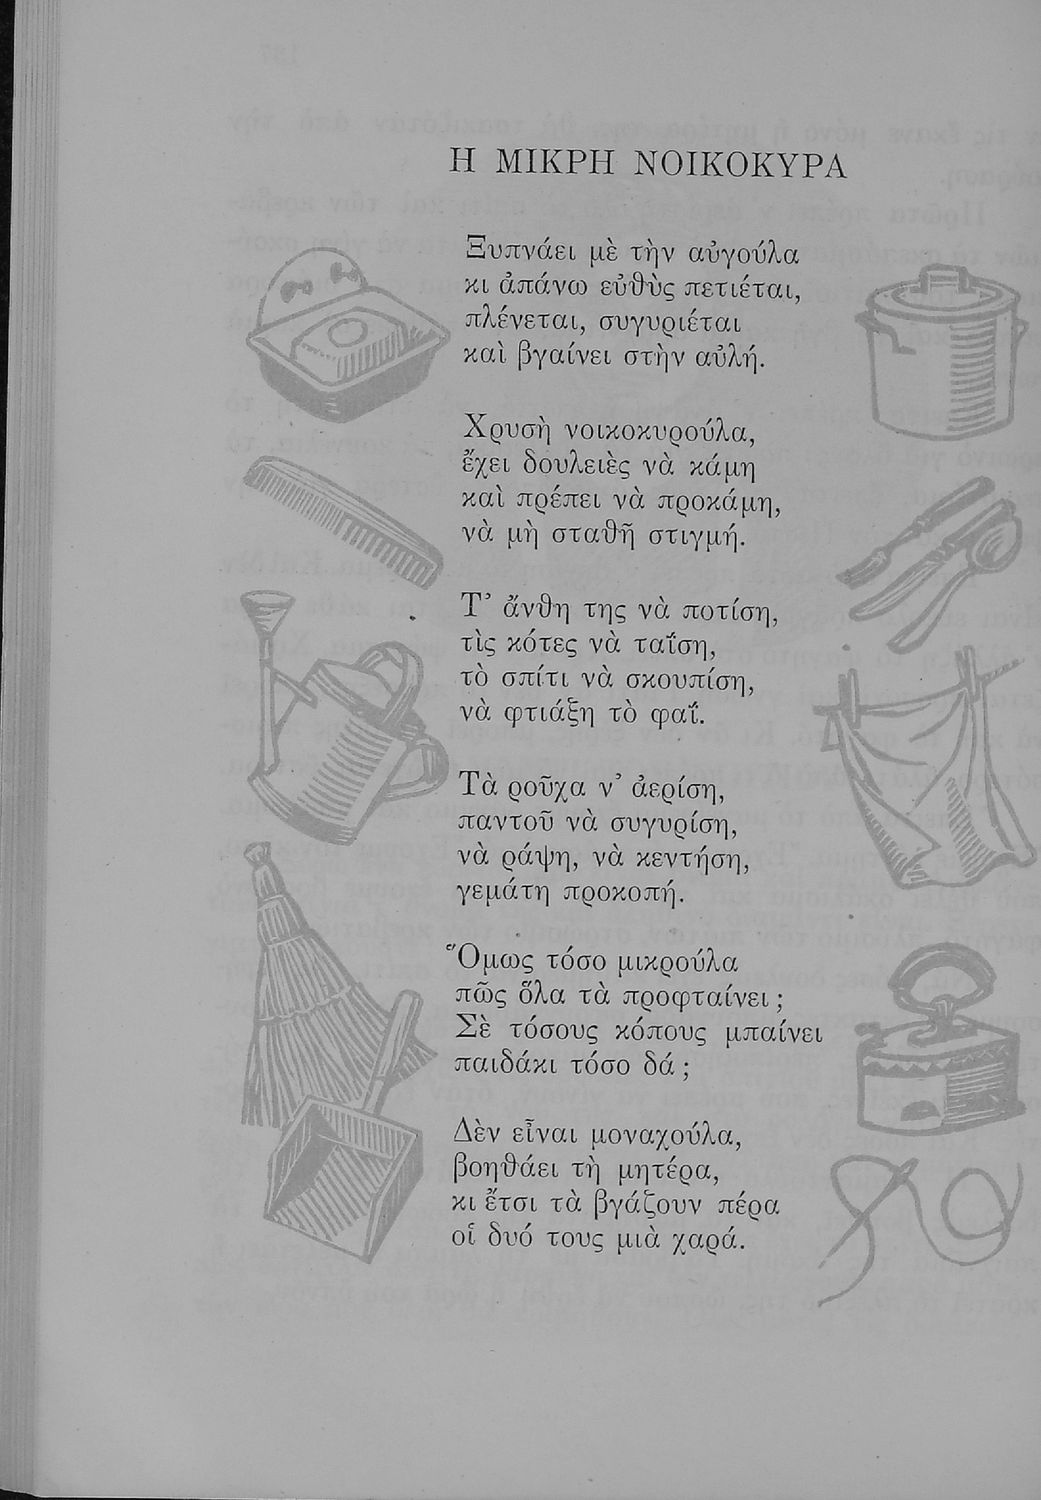 Η ΜΙΚΡΗ ΝΟΙΚΟΚΥΡΑ
Ξυπνάει μὲ τὴν αὐγούλα
κι ἀπάνω εὐθὺς πετιέται,
πλένεται, συγυριέται
καὶ βγαίνει στὴν αὐλή.
Χρυσὴ νοικοκυρούλα,
ἔχει δουλειὲς νὰ κάμη
καὶ πρέπει νὰ προκάμη,
νὰ μὴ σταθῆ στιγμή.
Τ’ ἄνθη της νὰ ποτίση,
τὶς κότες νὰ ταΐση,
τὸ σπίτι νὰ σκουπίση,
νὰ φτιάξη τὸ φαΐ.
Τὰ ροῦχα ν’ ἀερίση,
παντοῦ νὰ συγυρίση,
νὰ ράψη, νὰ κεντήση,
γεμάτη προκοπή.
Ὅμως τόσο μικρούλα
πῶς ὅλα τὰ προφταίνει ;
Σὲ τόσους κόπους μπαίνει
παιδάκι τόσο δά ;
Δὲν εἶναι μοναχούλα,
βοηθάει τὴ μητέρα,
κι ἔτσι τὰ βγάζουν πέρα
οἱ δυό τους μιὰ χαρά.